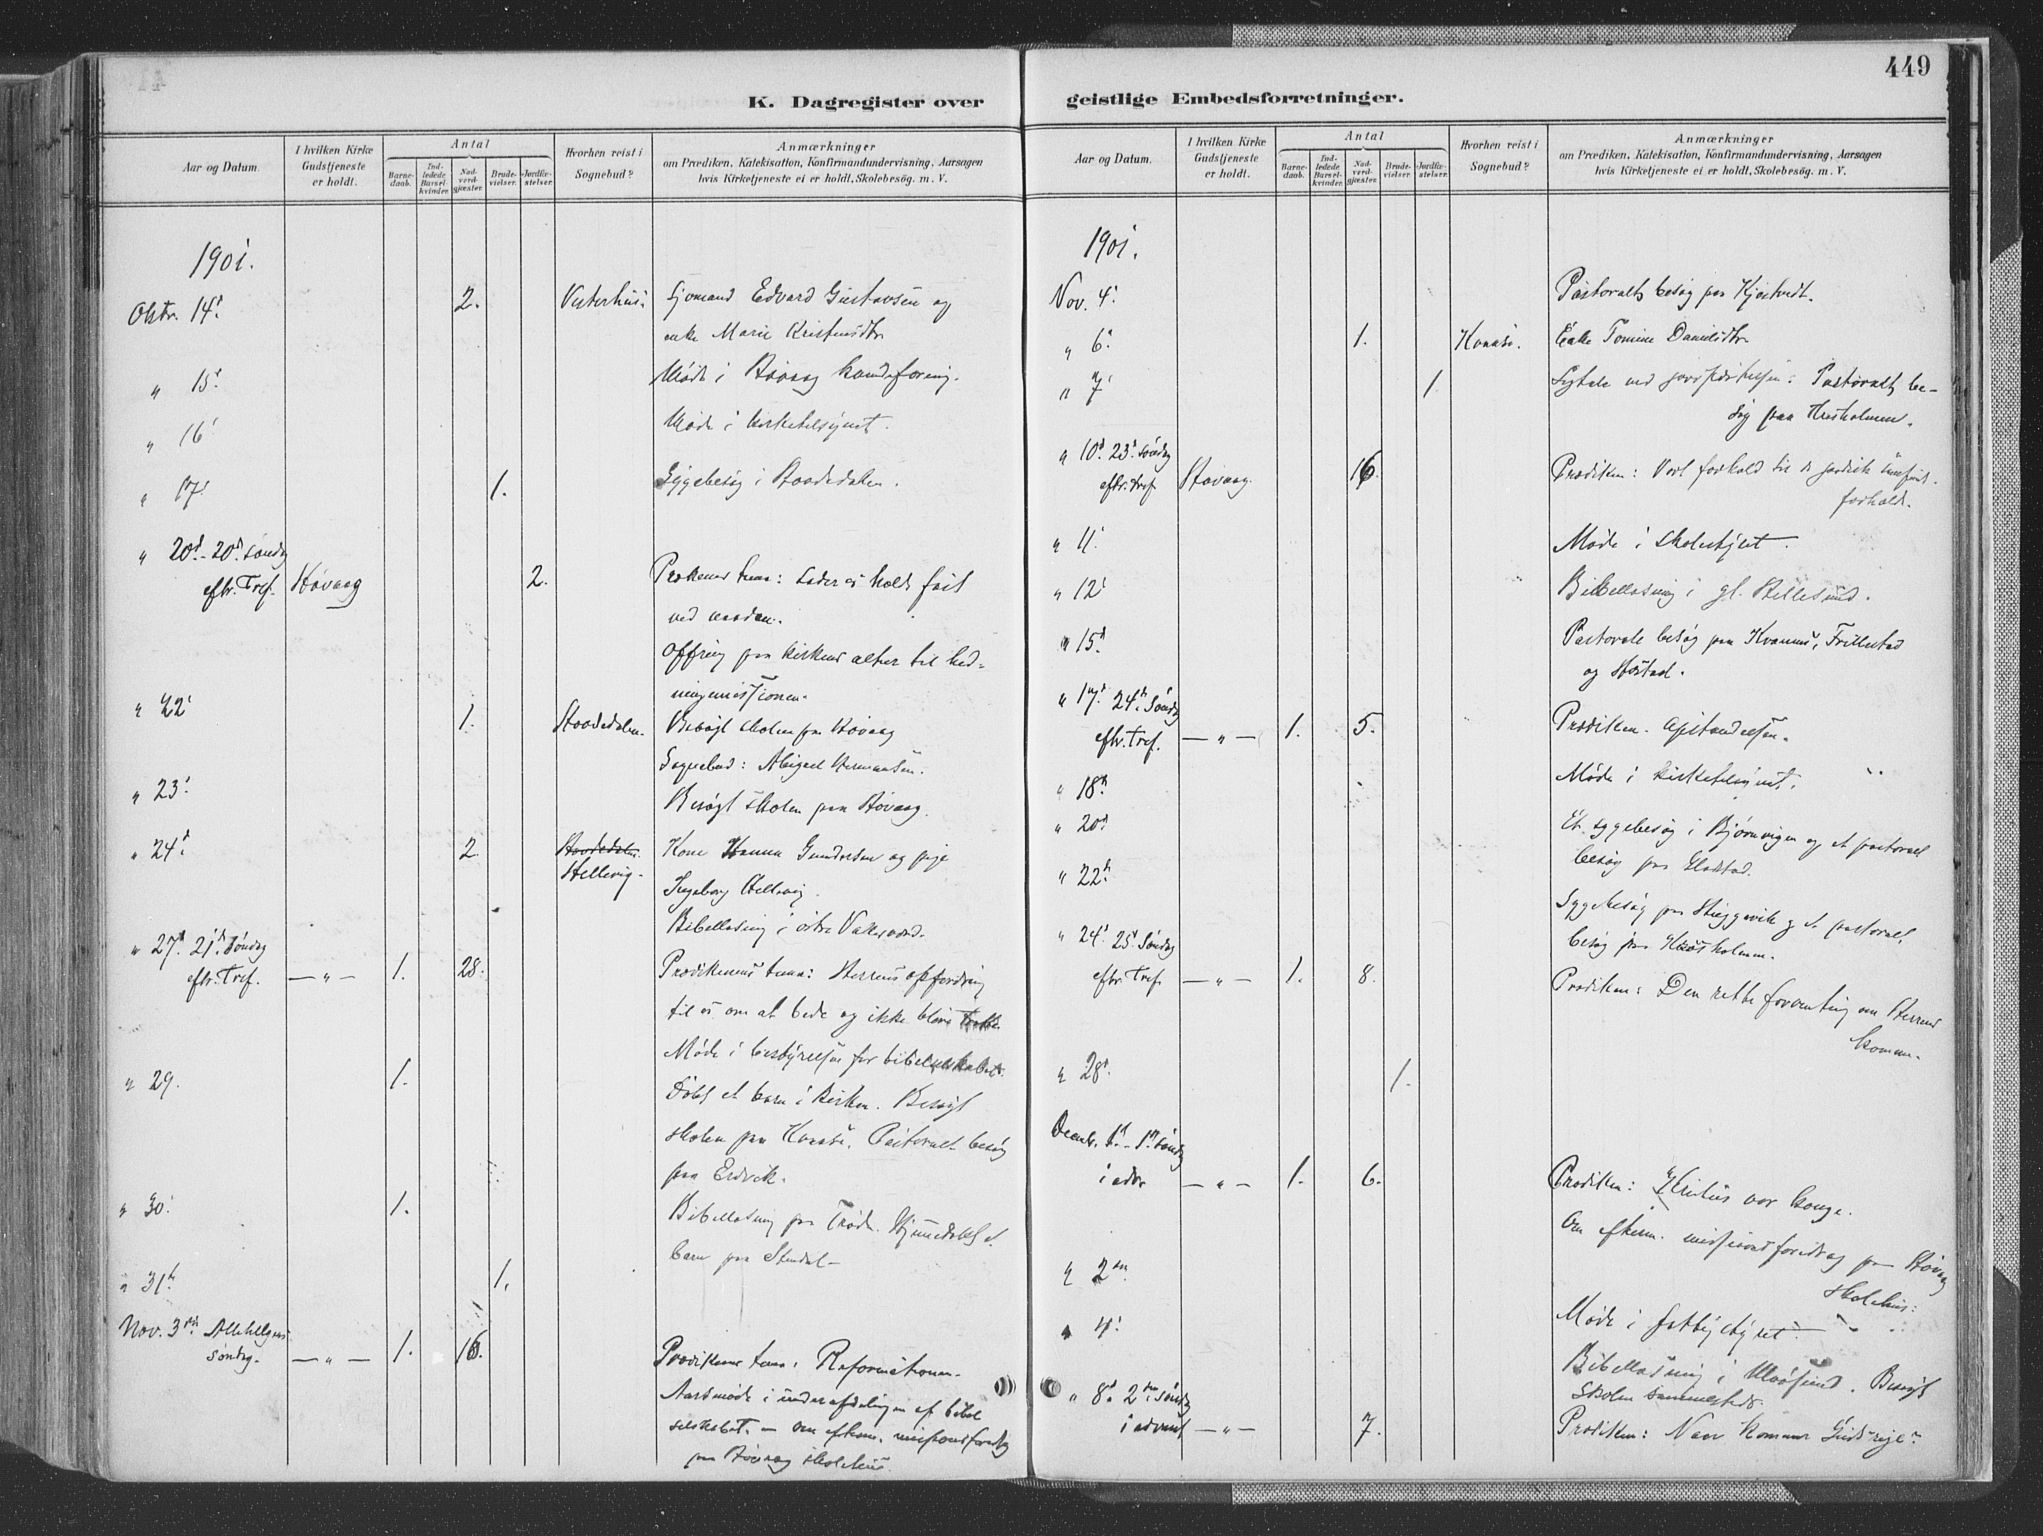 449
K. Dagregister over
geistlige Embedsforretninger.
Aar og Datum.
I hvilken Kirke Gudstjeneste er holdt.
Antal
Barnedaab.
Indledede Barselkvinder.
Nadverdgjæster.
Brudevielser.
Jordfæstelser.
Hvorhen reist i Sognebud?
Anmærkninger
om Prædiken, Katekisation, Konfirmandundervisning, Aarsagen
hvis Kirketjeneste ei er holdt, Skolebesøg. m. V.
1901.
Oktr. 14d 2. Vesterhus. Sjømand Edvard Gustavsen og
enke Marie Kristensdtr
" 15d Møde i Høvaag
" 16d Møde i kirketilsynet.
" 17d 1. Sygebesøg i Haadedalen.
" 20d - 20d Søndag
eftr. Tref. Høvaag 2. Prækenens tema: Lader os holde fast
ved naaden.
Offring paa kirkens alter til hed=
ningemissionen.
" 22d 1. Haadedalen. Besøgt skolen paa Høvaag
Sognebud: Abigael Hermansen.
" 23d Besøgt skolen paa Høvaag.
" 24d 2 Haadedalen. Kone Hanna Gundersen og pige
Hellevig. Ingeborg Hellevig.
Bibellæsning i østre Vallesværd.
" 27d 21d Søndag
eftr. Tref. — " — 1. 28. Prædikenens tema: Herrens opfordring
til os om at bede og ikke blive trætte.
Møde i bestyrelsen for bibelselskabet.
" 29. 1. Døbt et barn i kirken. Besøgt
skolen paa Kvaase. Pastoralt besøg
paa Eidvik.
" 30d 1. Bibellæsning paa Trøde. Hjemmedøbt et
barn paa Stendal
" 31te 1.
Nov. 3die Allehelgens
Søndag. — " — 1. 16. Prædikenens tema: Reformationen.
Aarsmøde i underafdelingen af bibel
selskabet. — Om efterm. missionsforedrag
paa Høvaag skolehus.
Aar og Datum.
I hvilken Kirke Gudstjeneste er holdt.
Antal
Barnedaab.
Indledede Barselkvinder.
Nadverdgjæster.
Brudevielser.
Jordfæstelser.
Hvorhen reist i Sognebud?
Anmærkninger
om Prædiken, Katekisation, Konfirmandundervisning, Aarsagen
hvis Kirketjeneste ei er holdt, Skolebesøg. m. V.
1901.
Nov. 4d Pastoralt besøg paa Kjøstvedt.
" 6d 1. Kvaase. Enke Tomine Danielsdtr
" 7d 1. Ligtale ved jordfæstelsen: Pastoralt be-
søg paa Hæsholmen.
" 10d 23d Søndag
eftr. Tref Høvaag. 16. Prædiken: Vort forhold til de jordiske
forhold.
" 11d Møde i skolestyret.
" 12d Bibellæsning i gl. Hellesund.
" 15d Pastorale besøg paa Kvannes, Frillestad
og Høstad.
" 17d 24d Søndag
eftr. Tref. — " — 1. 5. Prædiken. Opstandelsen.
" 18d Møde i kirketilsynet.
" 20d Et sygebesøg i Bjørnvigen og et pastoralt
besøg paa
" 22d Sygebesøg paa og et pastoralt
besøg paa Hæsholmen.
" 24d 25d Søndag
eftr. Tref — " — 1. 8. Prædiken: Den rette forventning om Herrens
komme.
" 28d 1.
Decmbr. 1st - 1st Søndag
i adv. — " — 1. 6. Prædiken: Kristus vor konge.
Om efterm. missionsforedrag paa Høvaag
skolehus.
" 2den
" 4d Møde i fattigstyret.
Bibellæsning i Ulvøsund. Besøgt
skolen sammesteds.
" 8d 2den Søndag
i advent — " — 7. Prædiken: Naar kommer Guds rige?